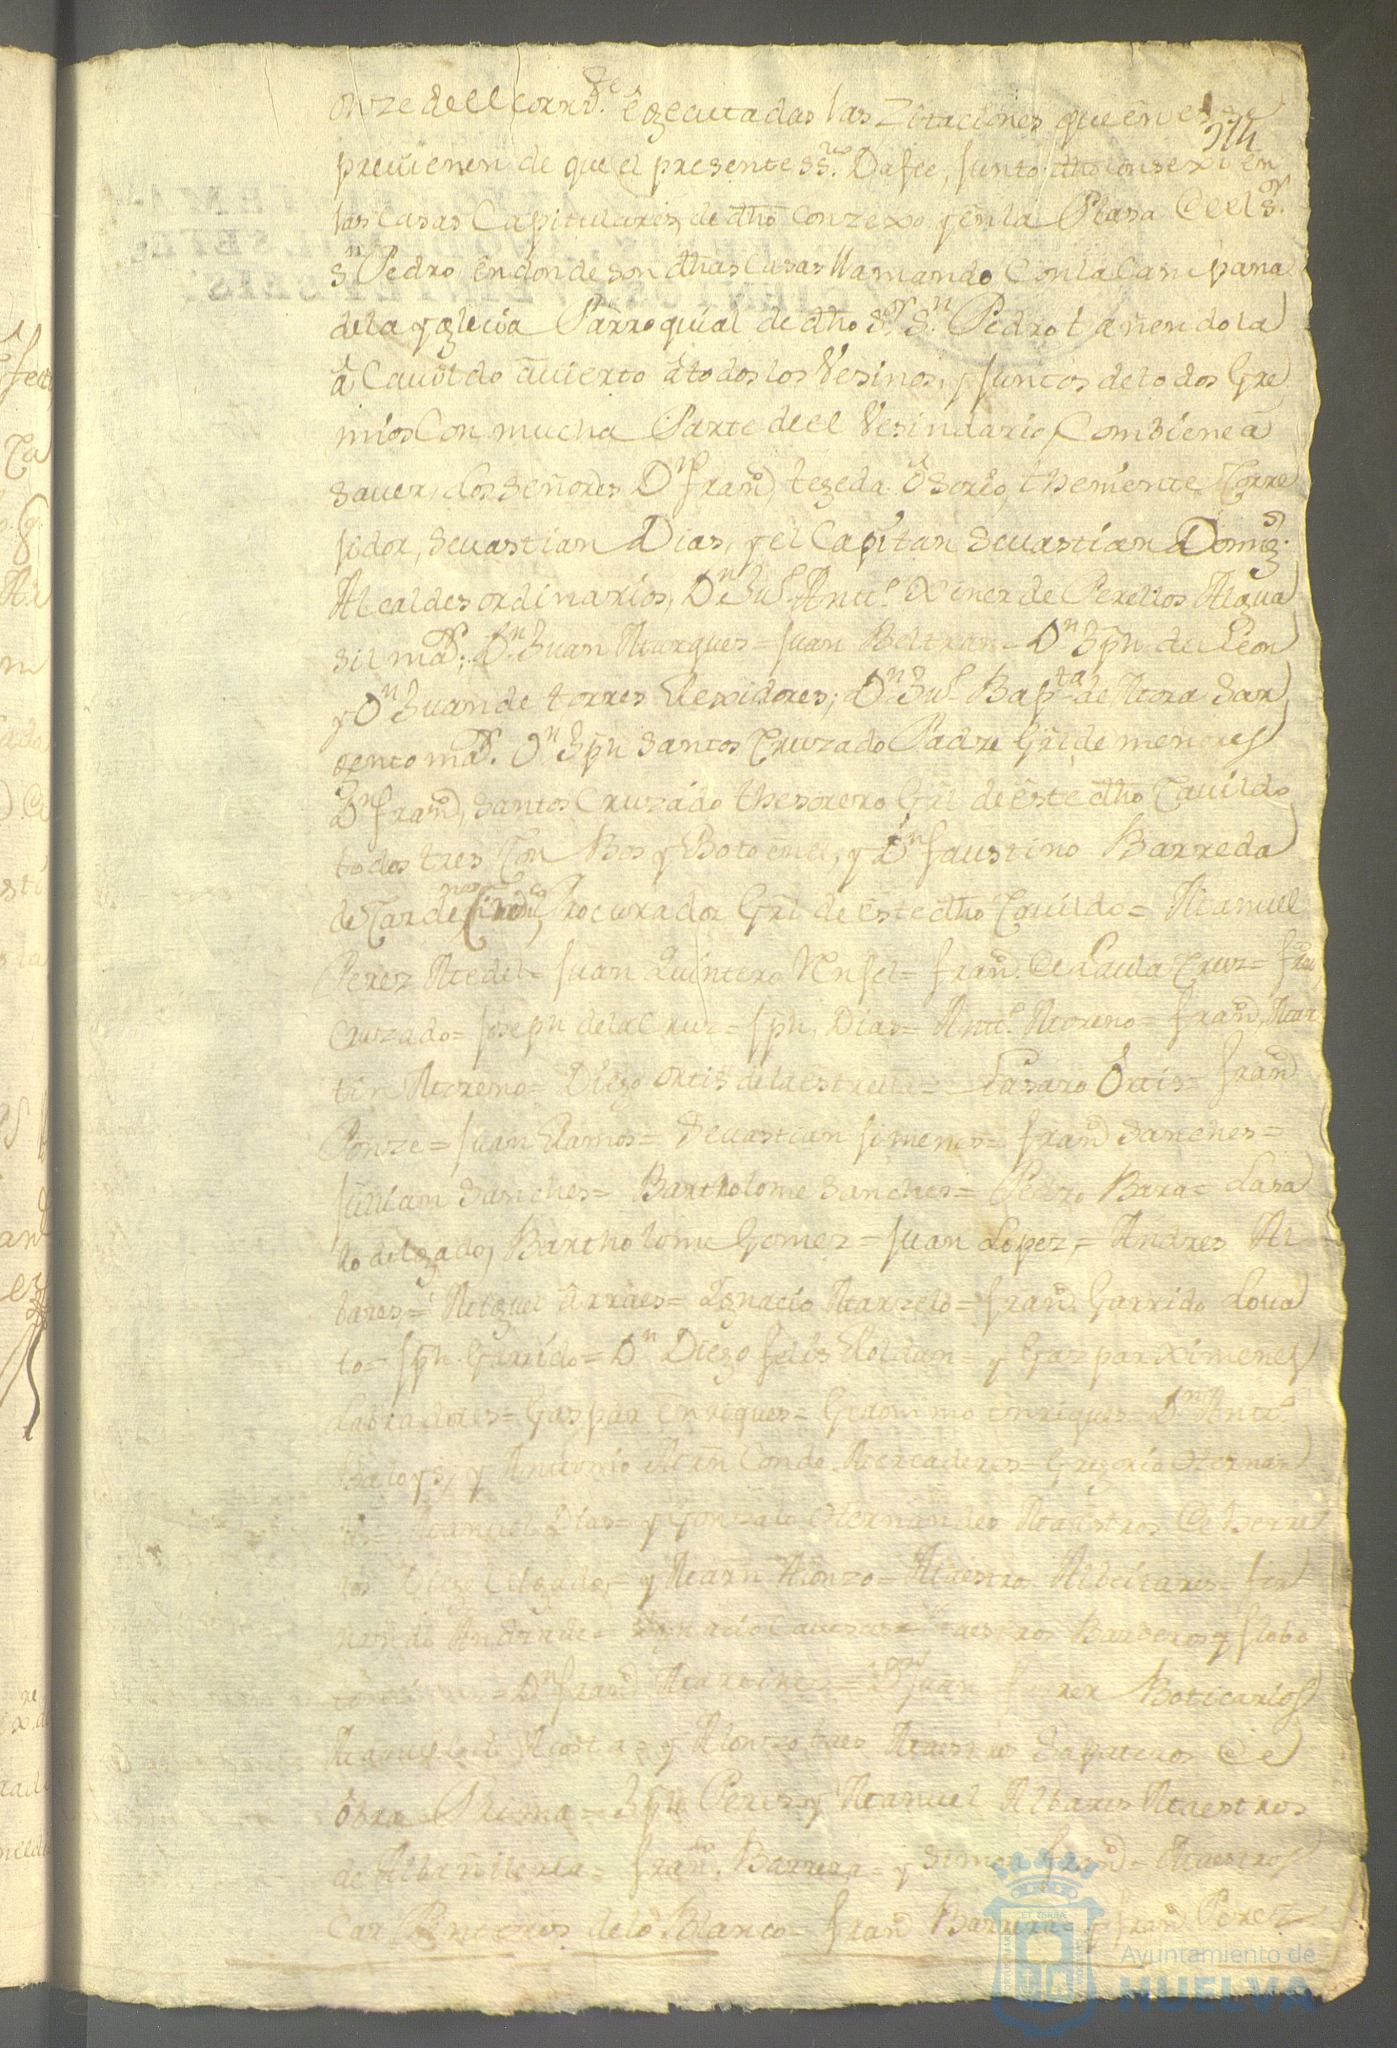 onze deel corrte. êgecutadas las Zitaciones que ên el se
214
previenen de que el presente ssno. Da fee, junto dho consexo en
las Casas Capitulares de dho Conzexo y ênla Plasa de el Sr.
Sn Pedro, en donde son dhas Casas llamando Con la Campana
de la yglecia Parroquial de dho Sr. Sn. Pedro tañendola
â Cavildo avierto â todos los Vesinos, y juntos de todos Gre
mios Con mucha Parte de el Vesindario, Combiene a
saver, los señores Dn franco, tegeda ôsorio, theniente Corre
jidor, Sevastian Dias, y el Capitan Sevastian Doming.
Alcaldes ordinarios, Dn Jul. Antto. Ximer de Perellos Algua
sil mor; Dn. Juan Marques = Juan Beltran = Dn Jph de Leon
y Dn Juan de torres Rexidores; Dn Jul. Bapta de Mora Sar
gento mor. Dn Jph Santos Cruzado Padre Grl de menores
Dn franco, Santos Cruzado thesorero Grl de êste dho Cavildo
todos tres Con Bos y Boto ênel, y Dn faustino Barreda
de Cardenas Procurador Grl de êste dho Cavildo = Manuel
Perez Medel = Juan Quintero = franco. de Paula Cruz = fran
Cruzado = Joseph de la Cruz = Jph, Dias = Antto. Moreno = franco, Mar
tin Moreno = Diego ortis de la estrella = Lasaro Ortis = franco
Ponze = Juan Ramos = Sevastian Simenes = franco Sanches =
Julian Sanches = Bartholome Sanches = Pedro Bara = Lasa
ro delgado, Bartholome Gomez = Juan Lopez, = Andres Al
bares = Miguel ârraes = Ygnacio Marzelo = franco. Garrido Lova
to = Jph. Garrido = Dn Diego felis Roldan = y Gaspar Ximenes
Labradores = Gaspar Enriques = Geronimo enriques = Dn Antto.
y Antonio Mercaderes = Gregorio Hernan
Manuel Dias = y Gonzalo Hernandes Maestros de herre
ros Diego delgado, = y Martn Alonzo = Maestros Albeitares = fer
nando Andrade = Ygnacio = Maestros Barberos y flobo
= Dn franco Martines = Dn Juan Boticarios
Manuel de Acosta = y Alonzo Maestros Sapateros de
ôbra Prima = Jph Peres y Manuel Albares Maestros
de Albanileria = franco. Barrera = y Simon franco = Maestros
Carpinteros de lo Blanco = franco Barrera = y franco Perez
Ayuntamiento de
HUELVA